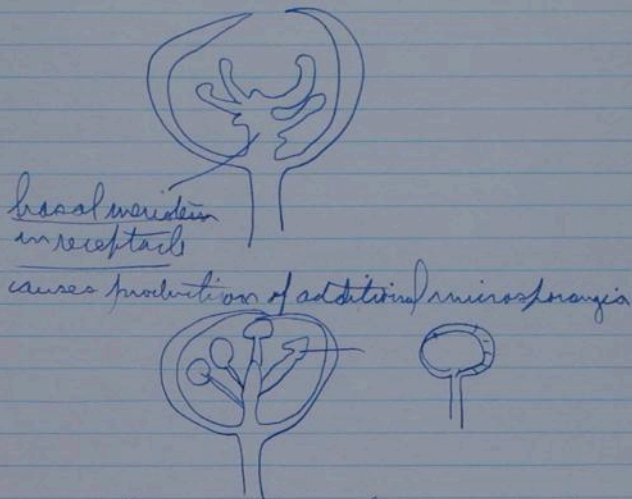 basal meristem
in receptacle
causes production of additional microsporangia